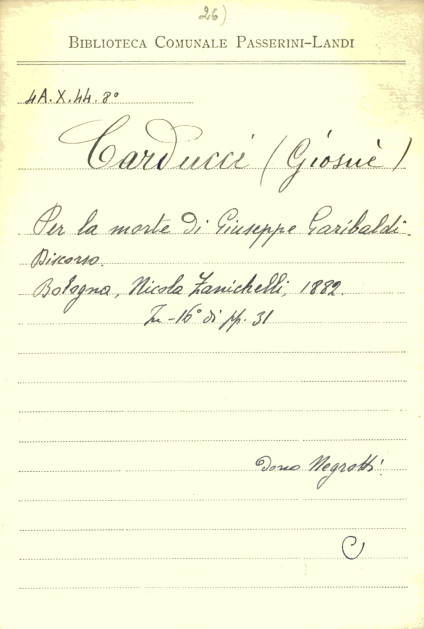 26)
Biblioteca Comunale Passerini-Landi
4A.X.44.8°
Carducci (Giosuè)
Per la morte di Giuseppe Garibaldi.
Discorso.
Bologna, Nicola Zanichelli, 1882.
In-16° di pp. 31
Dono Negrotti
C